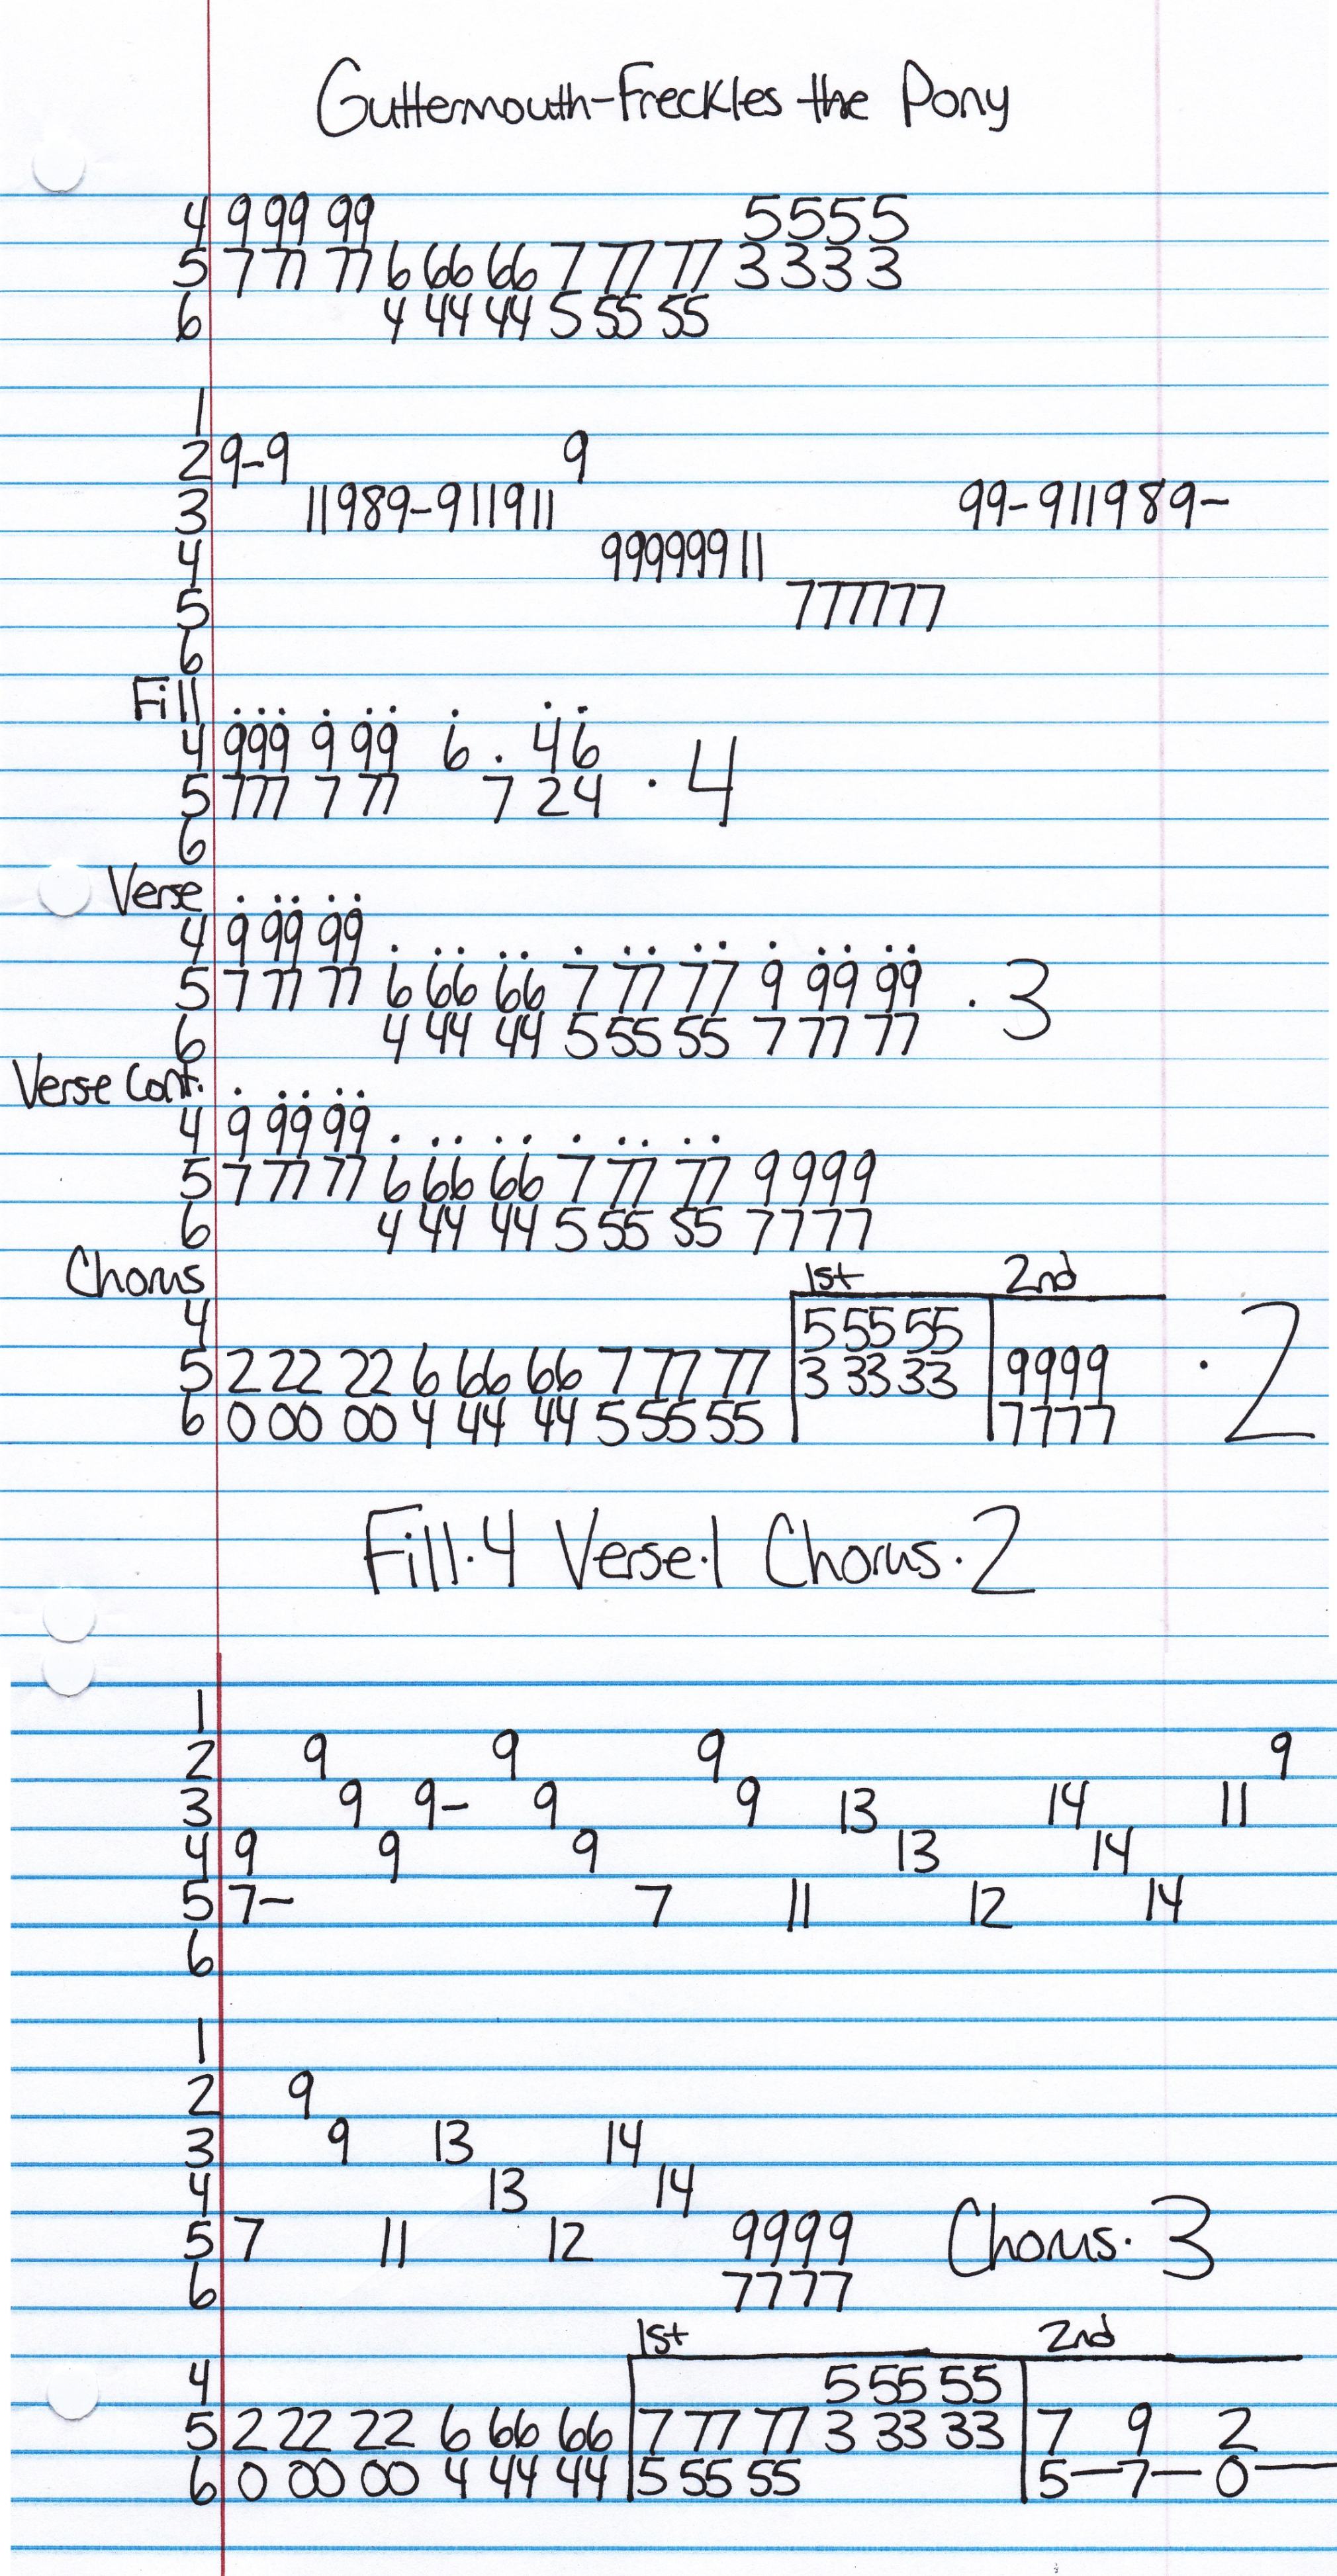 Guttermouth-Freckles the Pony
4 9 99 99 5555
5 7 77 77 6 66 66 7 77 77 3333
6 4 44 44 5 55 55
1
2 9-9 9
3 11989-911911 99-911989-
4 99999911
5 777777
6
Fill
4 999 9 99 6 . 46
5 777 7 77 7 24 . 4
6
Verse
4 9 99 99
5 7 77 77 6 66 66 7 77 77 9 99 99 . 3
6 4 44 44 5 55 55 7 77 77
Verse Cont.
4 9 99 99
5 7 77 77 6 66 66 7 77 77 9999
6 4 44 44 5 55 55 7777
Chorus 1st 2nd
4 5 55 55
5 2 22 22 6 66 66 7 77 77 3 33 33 9999 . 2
6 0 00 00 4 44 44 5 55 55 7777
Fill.4 Verse.1 Chorus.2
1
2 9 9 9 9
3 9 9- 9 9 13 14 11
4 9 9 9 13 14
5 7- 7 11 12 14
6
1
2 9
3 9 13 14
4 13 14
5 7 11 12 9999 Chorus. 3
6 7777
1st 2nd
4 5 55 55
5 2 22 22 6 66 66 7 77 77 3 33 33 7 9 2
6 0 00 00 4 44 44 5 55 55 5-7-0-